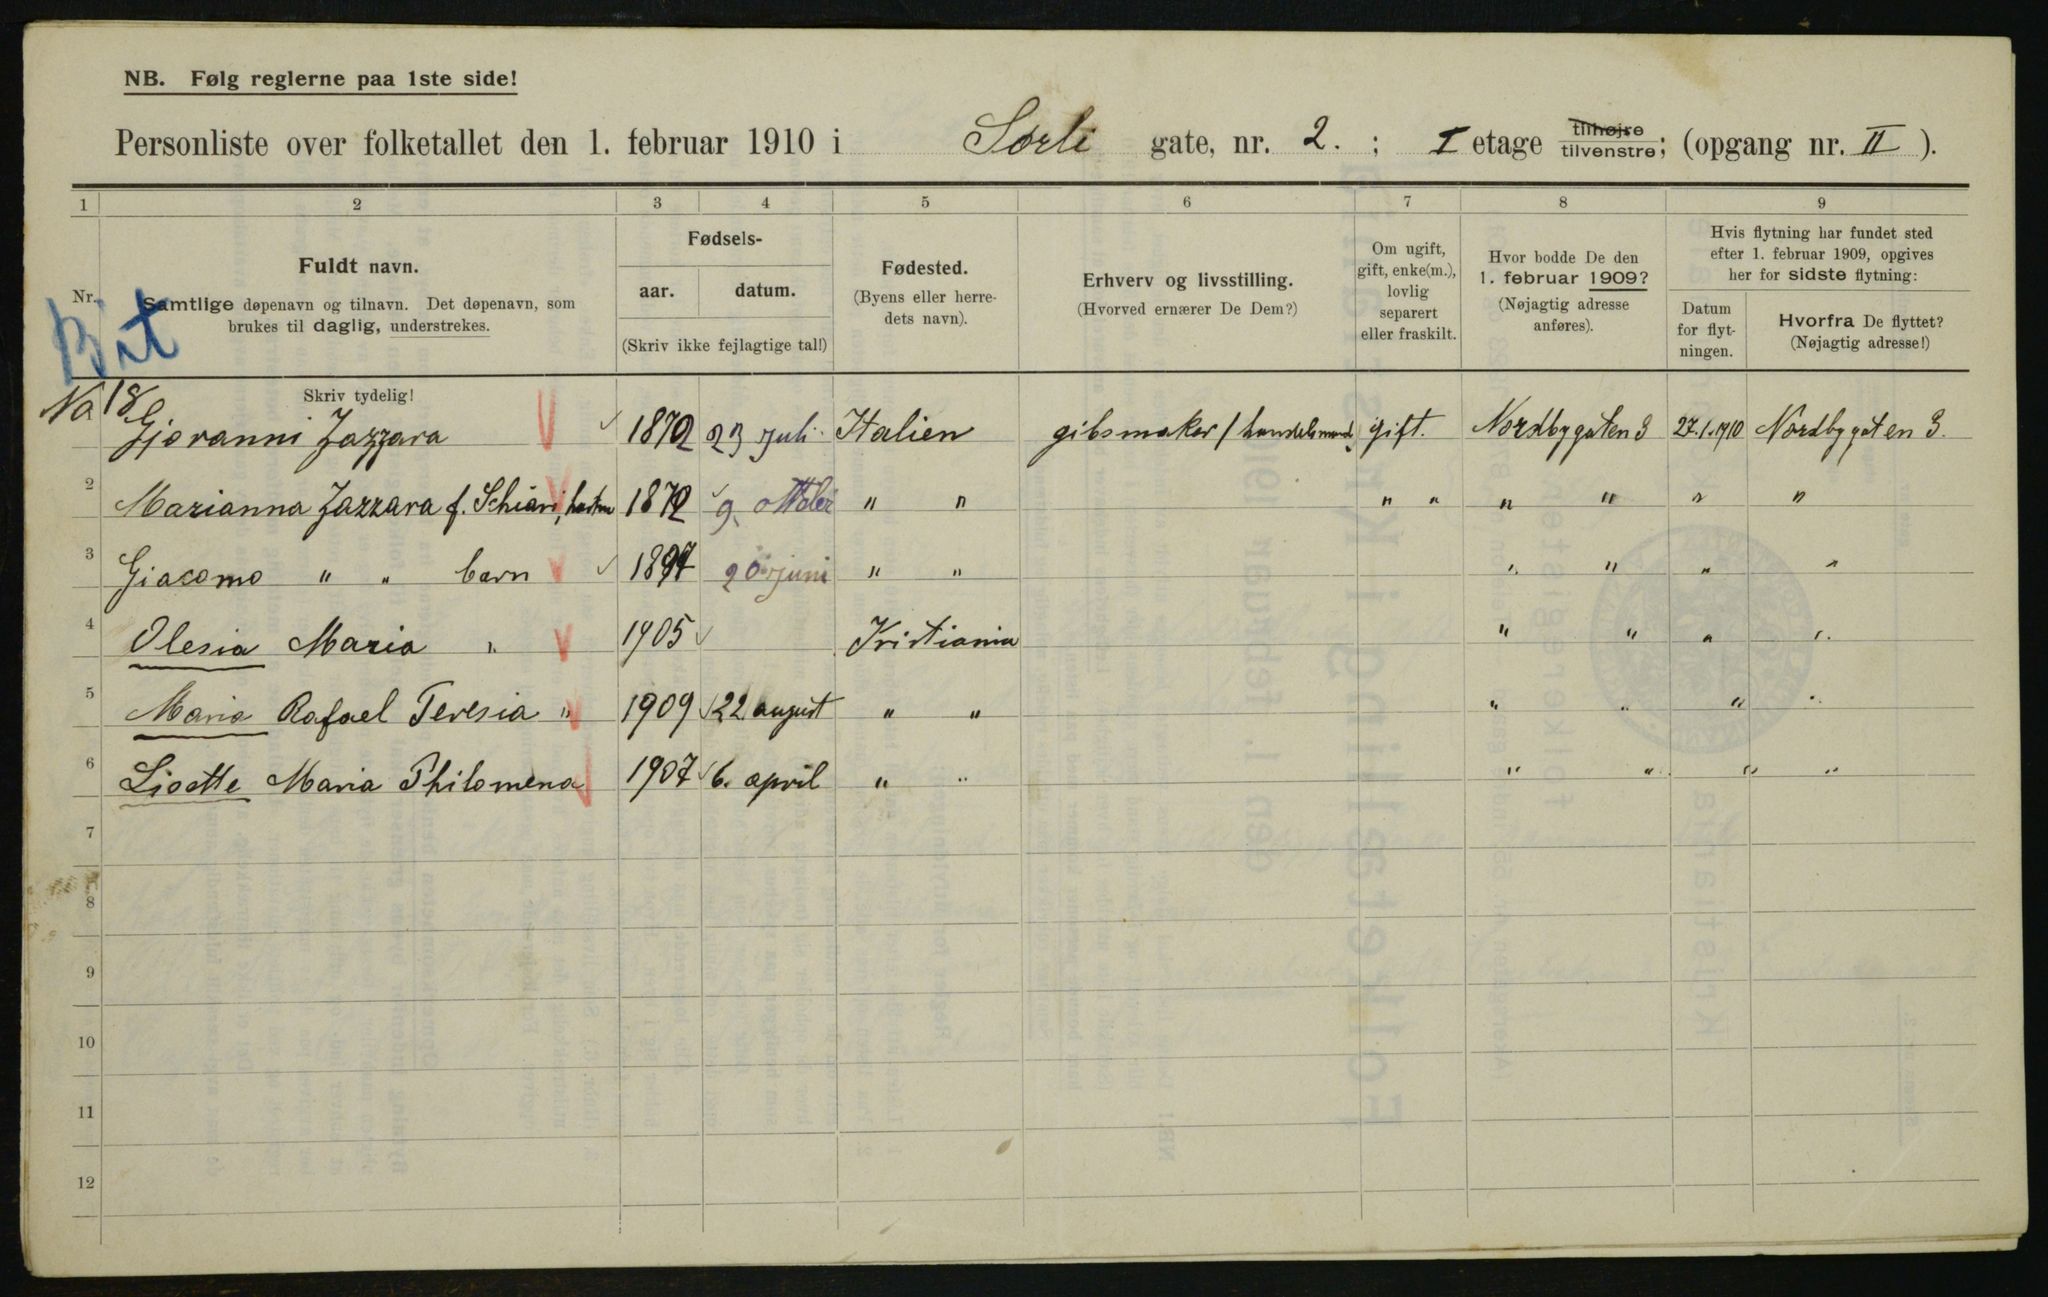 NB. Følg reglerne paa 1ste side!
Personliste over folketallet den 1. februar 1910 i Sorli gate, nr. 2. ; I etage tilhøjre tilvenstre; (opgang nr. II ).
1 2 3 4 5 6 7 8 9
Nr. Fuldt navn. Samtlige døpenavn og tilnavn. Det døpenavn, som brukes til daglig, understrekes.
Fødsels- aar. datum. (Skriv ikke fejlagtige tal!)
Fødested. (Byens eller herredets navn).
Erhverv og livsstilling. (Hvorved ernærer De Dem?)
Om ugift, gift, enke(m.), lovlig separert eller fraskilt.
Hvor bodde De den 1. februar 1909? (Nøjagtig adresse anføres).
Hvis flytning har fundet sted efter 1. februar 1909, opgives her for sidste flytning:
Datum for flytningen. Hvorfra De flyttet? (Nøjagtig adresse!)
Bit
No 18
Skriv tydelig!
1 Gjovanni Zazzara 1872 23 juli Italien gibsmaker / handelsmand gift. Nordbygaten 3 27.1.1910 Nordbygaten 3.
2 Marianna Zazzara f. Schiavi, hustru 1872 9. " " " " " " " "
3 Giacomo " " barn 1897 20 juni " " " " " "
4 Olesia Maria " 1905 Kristiania " " " "
5 Maria Rafael Teresia " 1909 22 august " " " " " "
6 Lisette Maria Philomena 1907 6. april " " " " " "
7
8
9
10
11
12